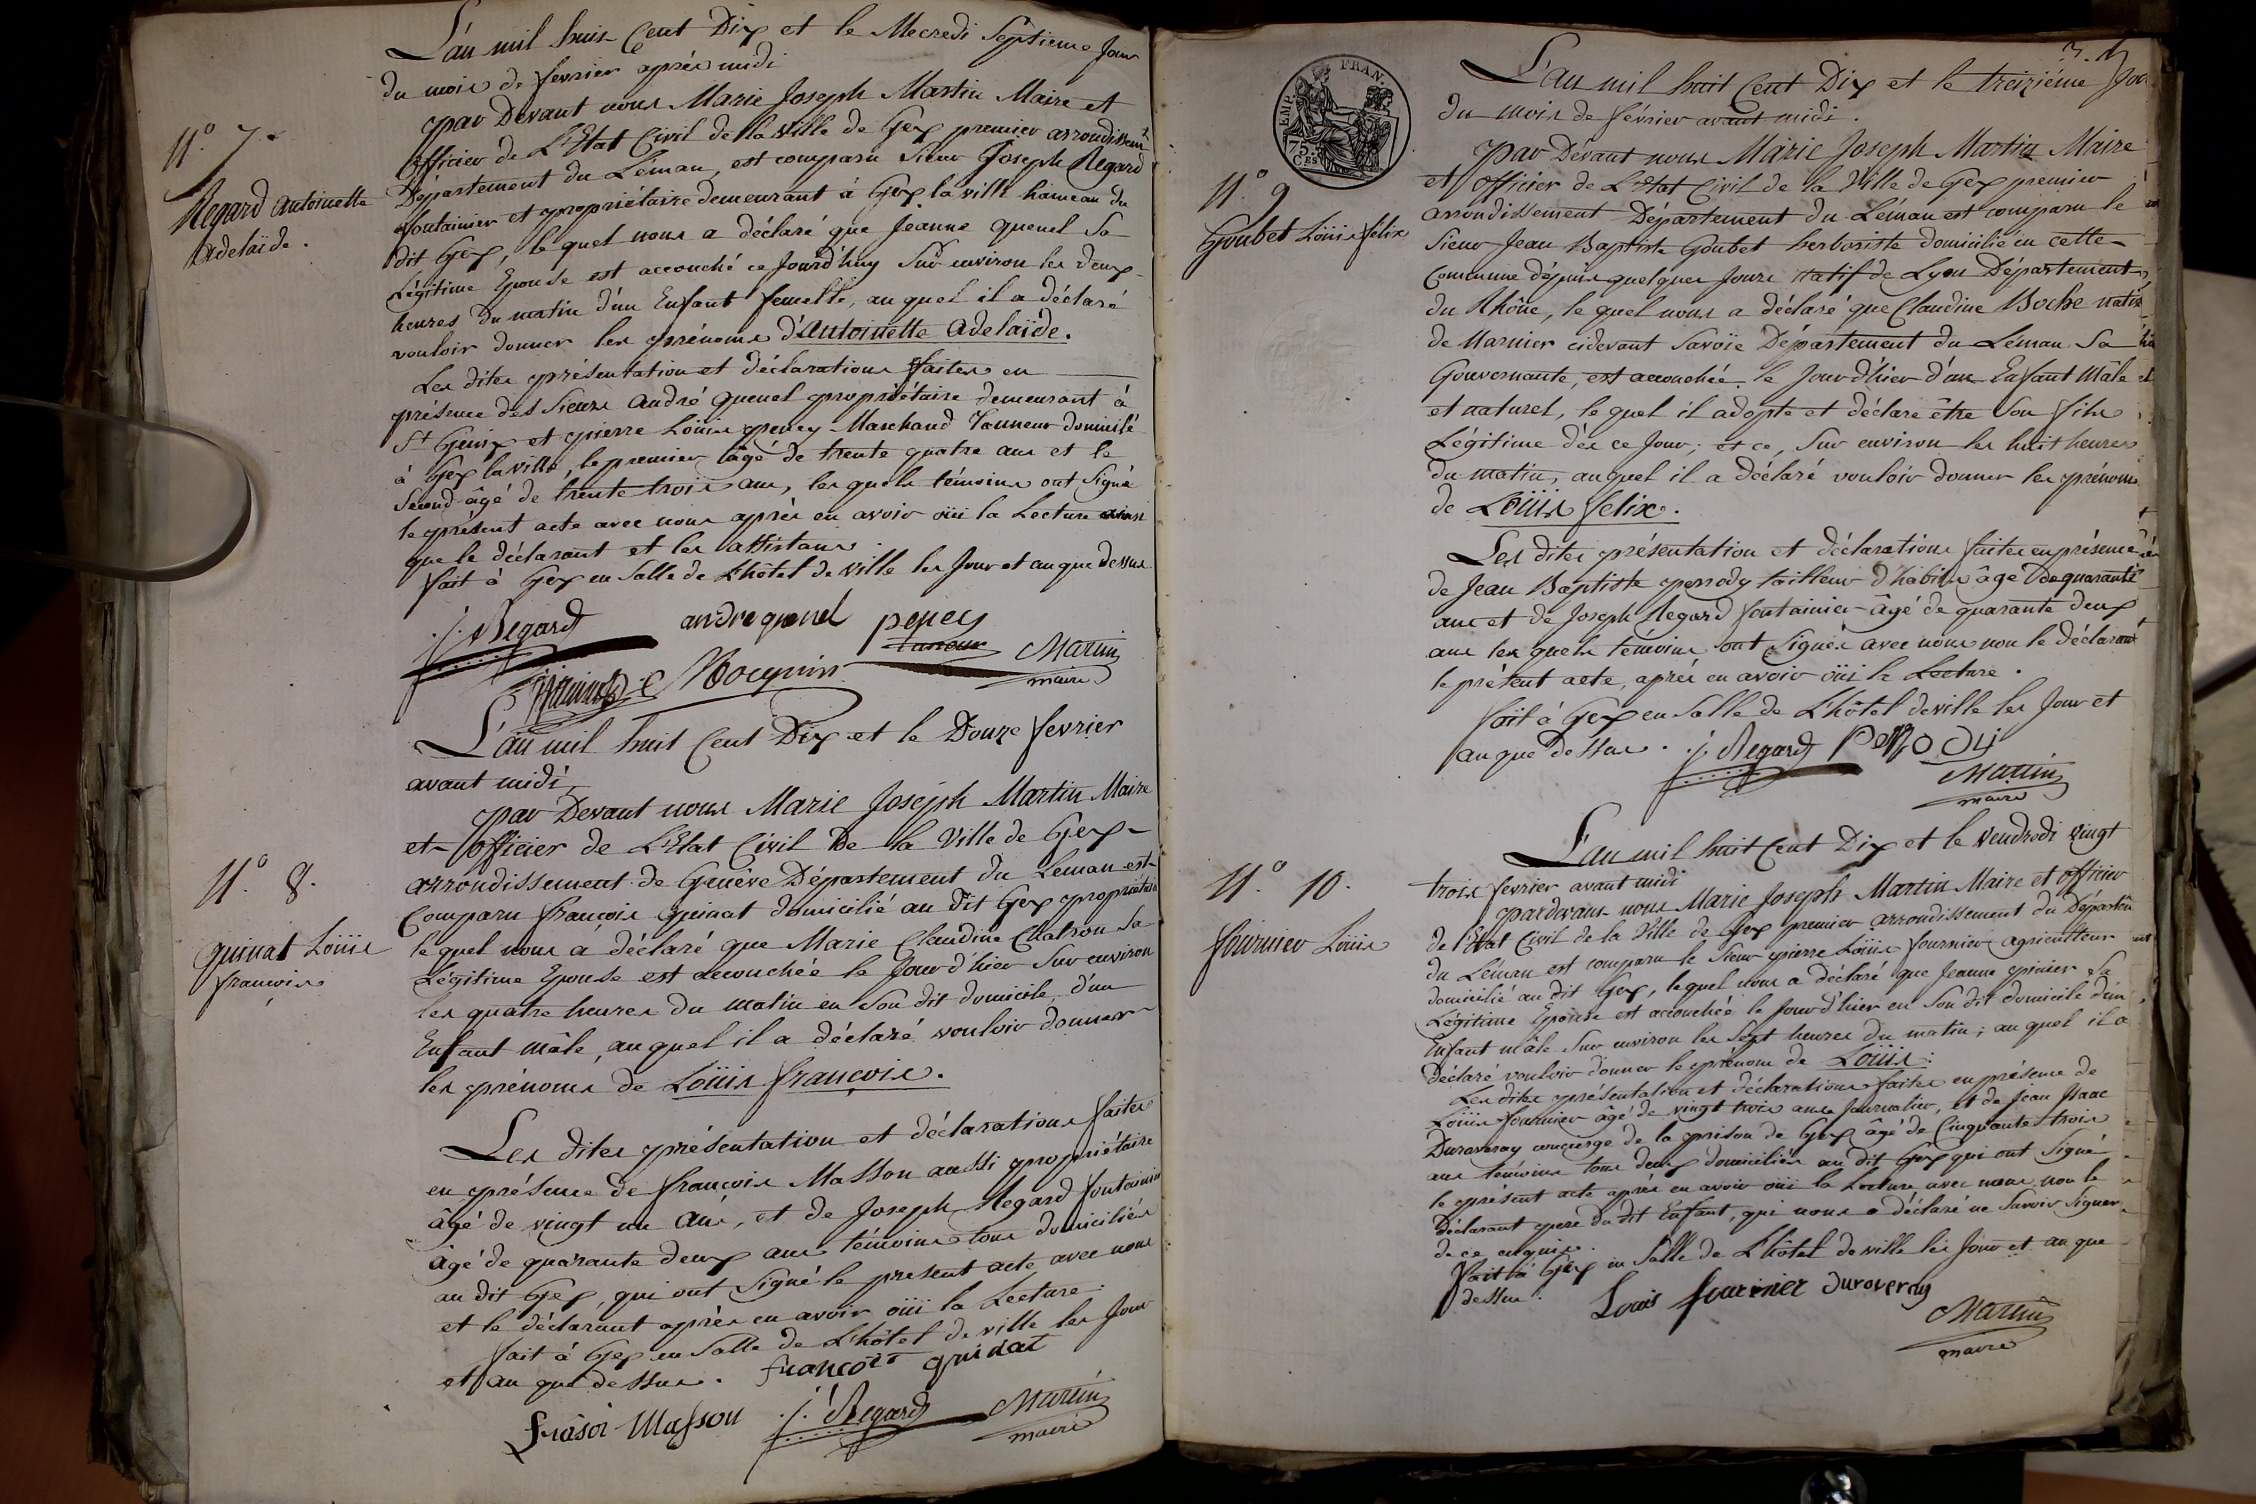 L'an mil huit Cent Dix et le Mecredi Septieme Jour
du mois de fevrier après midi
par Devant nous Marie Joseph Martin Maire et
officier de L'Etat Civil de la ville de Gex premier arrondissem.t
Département du Léman, est comparu Sieur Joseph Regard
fontainier et propriétaire demeurant à Gex la ville hameau du
dit Gex, le quel nous a déclaré que Jeanne quenel Sa
Légitime Epouse est accouché ce Jourd'huy Sur environ les deux
heures du matin d'un Enfant femelle, au quel il a déclaré
vouloir donner les prénoms d'Antoinette Adelaïde.
Les dites présentation et déclarations faites en
présence des Sieurs André quenel propriétaire demeurant à
S.t Genix et pierre Loüis peney Marchand Tanneur domicilié
à Gex la ville, le premier âgé de trente quatre ans et le
Second âgé de trente trois ans, les quels témoins ont Signé
le présent acte avec nous après en avoir oüi la Lecture ainsi
que le déclarant et les assistans
fait à Gex en Salle de L'hôtel de ville les Jour et an que dessus
N.° 7.
Regard Antoinette
Adelaïde.
j. Regard andre quenel peney
tanneur
Martin
maire
L'an mil huit Cent Dix et le Douze fevrier
avant midi,
par Devant nous Marie Joseph Martin Maire
et officier de L'Etat Civil De la Ville de Gex
arrondissement de Genève Département du Leman est
Comparu françois quinat domicilié au Dit Gex propriétaire
le quel nous a déclaré que Marie Claudine Chalson Sa
Légitime Epouse est accouchée le Jour d'hier Sur environ
les quatre heures du matin en Son dit domicile, d'un
Enfant mâle, au quel il a déclaré vouloir donner
les prénoms de Loüis françois.
Les dites présentation et déclarations faites
en présence de françois Masson aussi propriétaire
âgé de vingt un ans, et de Joseph Regard fontainier
âgé de quarante deux ans témoins tous domiciliés
au dit Gex, qui ont Signé le present acte avec nous
et le déclarant après en avoir oüi la Lecture.
fait à Gex en Salle de L'hôtel de ville les Jour
et an que dessus.
N.° 8.
quinat Loüis
françois
françois quinat
fråsoi Masson j. Regard Martin
maire
EMP. FRAN.
75
C.ES
L'an mil huit Cent Dix et le treizième Jour
du mois de février avant midi.
par Dévant nous Marie Joseph Martin Maire
et officier de L'Etat Civil de la Ville de Gex premier
arrondissement Département du Léman est comparu le
Sieur Jean Baptiste Goubet herboriste domicilié en cette
Commune depuis quelques Jours natif de Lyon Département
du Rhône, le quel nous a déclaré que Claudine Boche native
de Marnier cidevant Savoïe Département du Léman Sa
Gouvernante, est accouchée le Jour d'hier d'un Enfant Mâle
et naturel, le quel il adopte et déclare être Son fils
Légitime dès ce Jour; et ce, Sur environ les huit heures
du matin, au quel il a déclaré vouloir donner les prénoms
de Loüis felix.
Les dites présentation et déclarations faites en présence
de Jean Baptiste perrody tailleur d'habits âgé De quarante
ans et de Joseph Regard fontainier âgé de quarante deux
ans les quels témoins ont Signés avec nous non le déclarant
le présent acte, après en avoir oüi la Lecture.
fait à Gex en Salle de L'hôtel de ville les Jour et
an que dessus. j. Regard peRRody
Martin
maire
N.° 9
Goubet Loüis felix
L'an mil huit Cent Dix et le Vendredi vingt
trois fevrier avant midi
pardevant nous Marie Joseph Martin Maire et officier
de l'Etat Civil de la Ville de Gex premier arrondissement du Départ.t
du Léman est comparu le Sieur pierre Loüis fournier agriculteur
domicilié au dit Gex, lequel nous a déclaré que Jeanne pinier Sa
Légitime Epouse est accouchée le Jour d'hier en Son dit domicile d'un
Enfant mâle Sur environ les Sept heures du matin; au quel il a
déclaré vouloir donner le prénom de Loüis.
Les dites présentation et déclarations faites en présence de
Loüis fournier âgé de vingt trois ans Journalier, et de Jean Isaac
Duroveray concierge de la prison de Gex âgé de Cinquante trois
ans témoins tous deux domiciliés au dit Gex qui ont Signé
le présent acte après en avoir oüi la Lecture avec nous non le
Déclarant pere du dit Enfant, qui nous a déclaré ne Savoir Signer
de ce enquis.
fait à Gex en Salle de L'hôtel de ville les Jour et an que
dessus.
N.° 10.
fournier Loüis
Louis fournier duroveray
Martin
maire